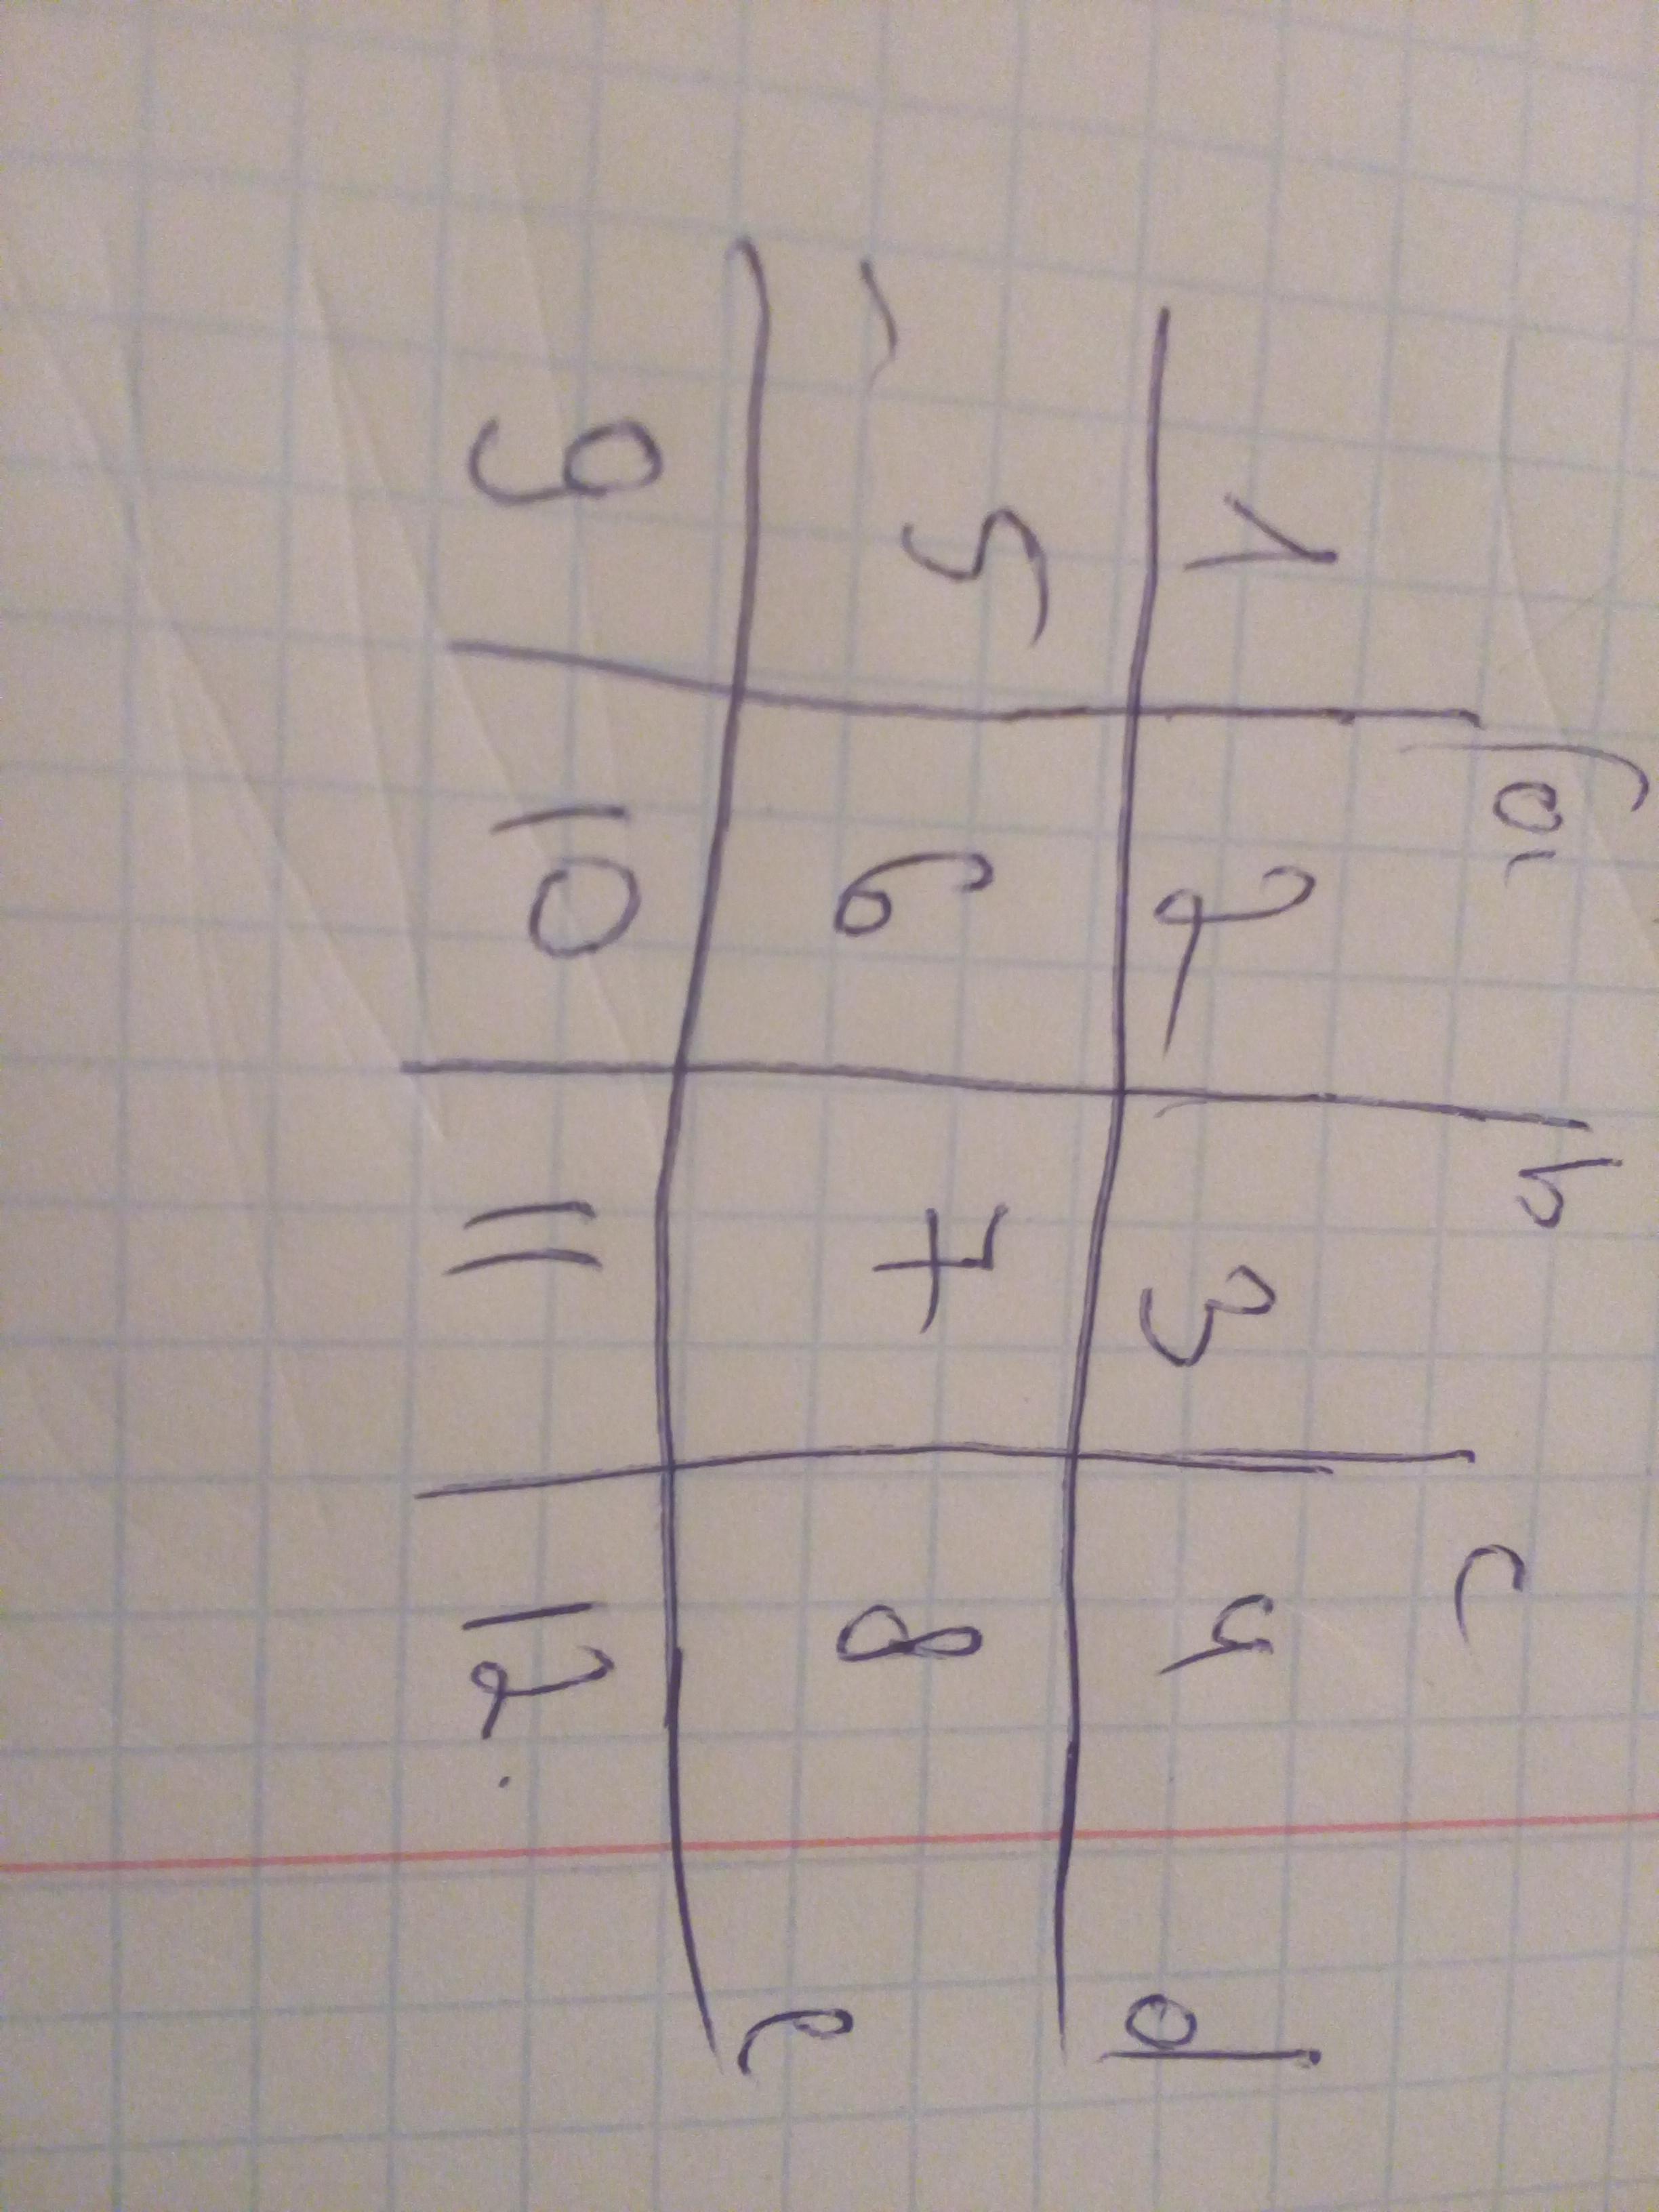 a b c
1 2 3 4 d
5 6 7 8 e
9 10 11 12